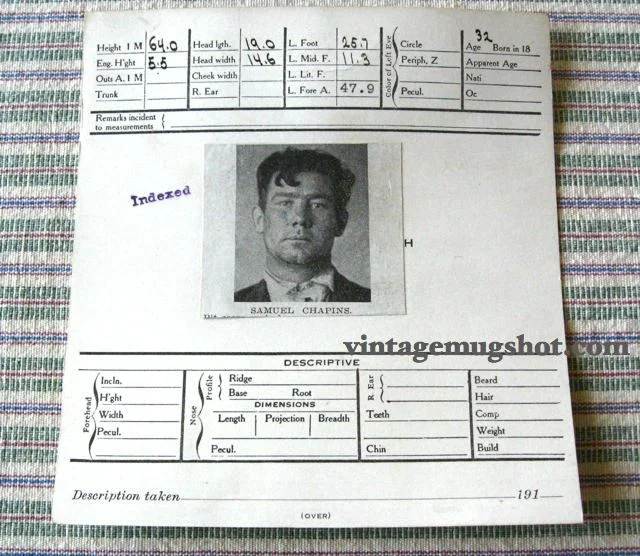 Height 1 M 64.0 Head lgth. 19.0 L. Foot 25.7 Circle 32 Age Born in 18
Eng. H'ght 5.5 Head width 14.6 L. Mid. F. 11.3 Color of Left Eye Periph, Z Apparent Age
Outs A. 1 M Cheek width L. Lit. F. Nati
Trunk R. Ear L. Fore A. 47.9 Pecul. Oc
Remarks incident
to measurements
Indexed
H
SAMUEL CHAPINS.
vintagemugshot.com
DESCRIPTIVE
Forehead Incln. Nose Profile Ridge R. Ear Beard
H'ght Base Root Hair
Width DIMENSIONS Teeth Comp
Pecul. Length Projection Breadth Weight
Pecul. Chin Build
Description taken 191
(OVER)